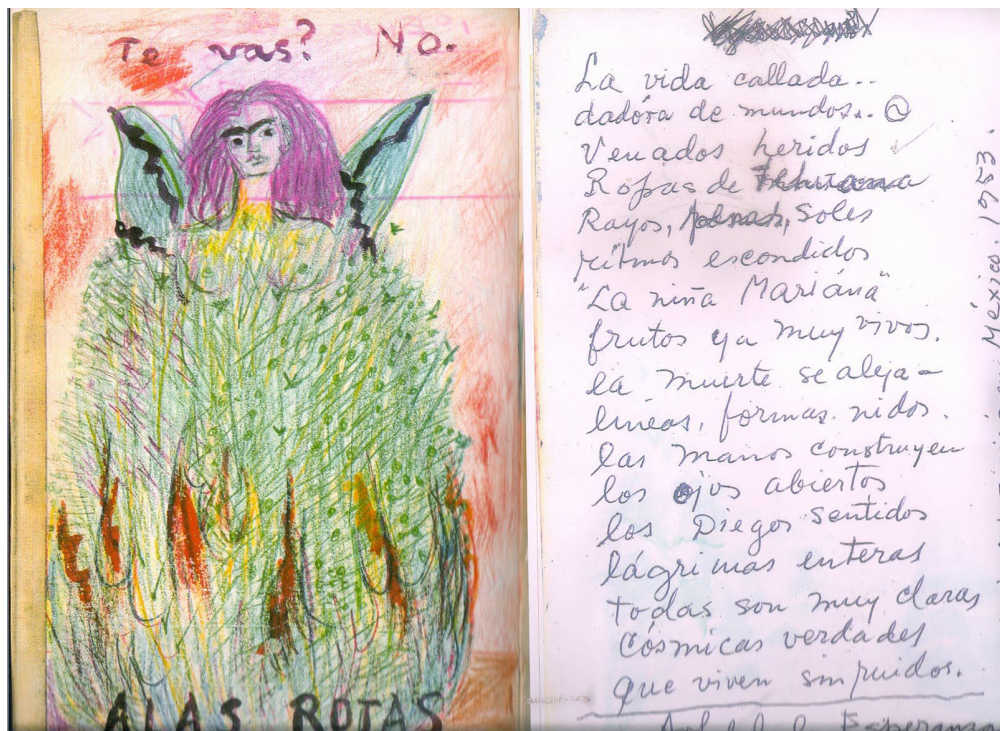 Te vas? No.
ALAS ROTAS
La vida callada..
dadóra de mundos..
Venados heridos
Ropas de Tehuana
Rayos, penas, Soles
ritmos escondidos
"La niña Mariána"
frutos ya muy vivos.
la muerte se aleja –
lineas, formas. nidos.
las manos construyen
los ojos abiertos
los Diegos sentidos
lágrimas enteras
todas son muy claras
Cósmicas verdades
que viven sin ruidos.
Arbol de la Esperanza
México. 1953.